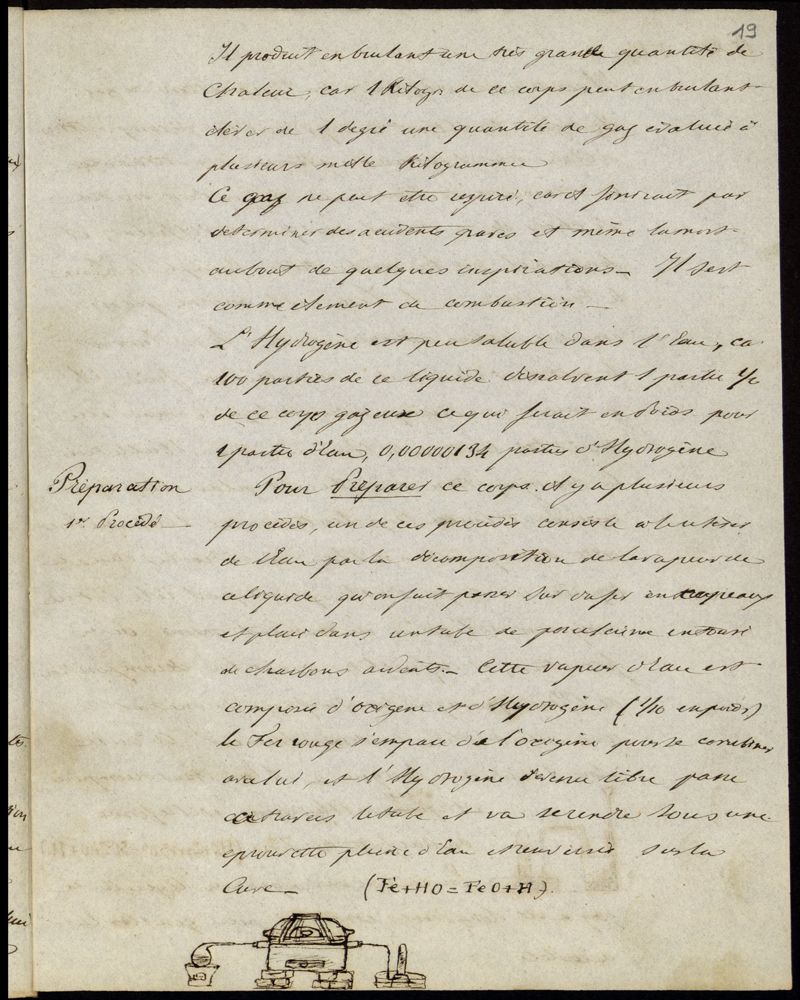 19
Il produit en brulant une très grande quantité de
Chaleur, car 1 Kilogr de ce corps peut en brulant
élever de 1 degré une quantité de gaz évaluée à
plusieurs mille Kilogrammes
Ce gaz ne peut être respiré, car il finirait par
déterminer des accidents graves et même la mort
au bout de quelques inspirations_ Il sert
comme élément de combustion_
L'Hydrogène est peu soluble dans l'Eau, ca
100 parties de ce liquide dissolvent 1 partie 1/2
de ce corps gazeux ce qui serait en poids pour
1 partie d'Eau, 0,00000134 parties d'Hydrogène
Préparation
1er Procédé
Pour Préparer ce corps il y a plusieurs
procédés, un de ces procédés consiste à
de l'Eau par la décomposition de la vapeur de
ce liquide qu'on fait passer sur du fer en copeaux
et placé dans un tube de porcelaine entouré
de charbons ardents_ Cette vapeur d'eau est
composée d'oxigène et d'Hydrogène (1/10 en poids)
le Fer rouge s'empare de l'oxigène pour se combiner
avec lui, et l'Hydrogène devenu libre passe
à travers le tube et va se rendre sous une
éprouvette pleine d'Eau et renversée sur la
Cuve_ (Fe+HO=FeO+H).